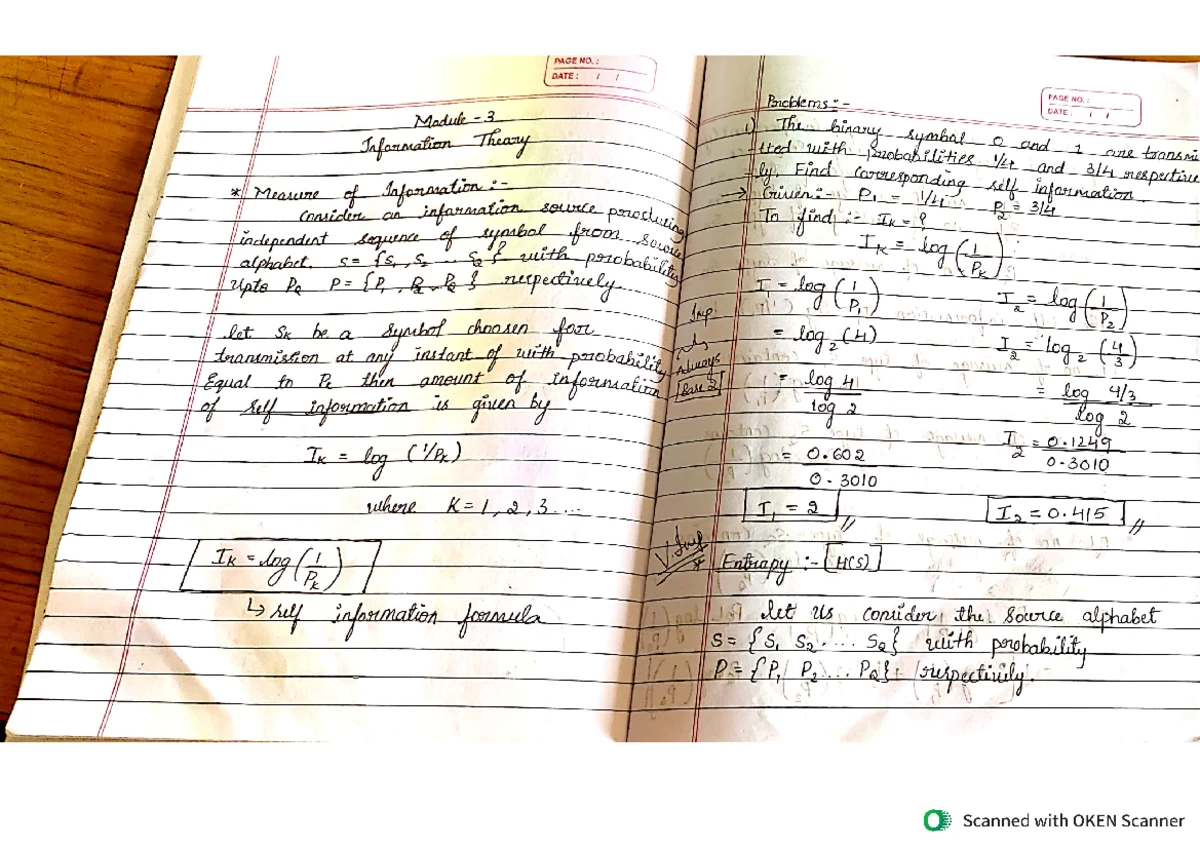 PAGE NO. :
DATE : / /
Module - 3
Information Theory
* Measure of Information :-
Consider an information source producing
independent sequence of symbol from source
alphabet. S = {S1, S2 .. SQ} with probability
upto PQ P = {P1, P2, PQ} respectively.
let SK be a symbol choosen for
transmission at any instant of with probability
Equal to PK then amount of information
of self information is given by
IK = log (1/PK)
where K = 1, 2, 3 ....
IK = log (1/PK)
↳ self information formula
PAGE NO. :
DATE : / /
Problems :-
1) The binary symbol 0 and 1 are transmi
-tted with probabilities 1/4 and 3/4 respective
ly. Find corresponding self information.
→ Given :- P1 = 1/4 P2 = 3/4
To find :- IK = ?
IK = log (1/PK)
I = log (1/P1) I2 = log (1/P2)
= log2 (4) I2 = log2 (4/3)
Imp
Always
Base 2
= log 4 / log 2 = log 4/3 / log 2
= 0.602 / 0.3010 I2 = 0.1249 / 0.3010
I1 = 2 // I2 = 0.415 //
Imp
* Entropy :- H(S)
let us consider the source alphabet
S = {S1 S2 .... SQ} with probability
P = {P1 P2 .... PQ} respectively.
Scanned with OKEN Scanner